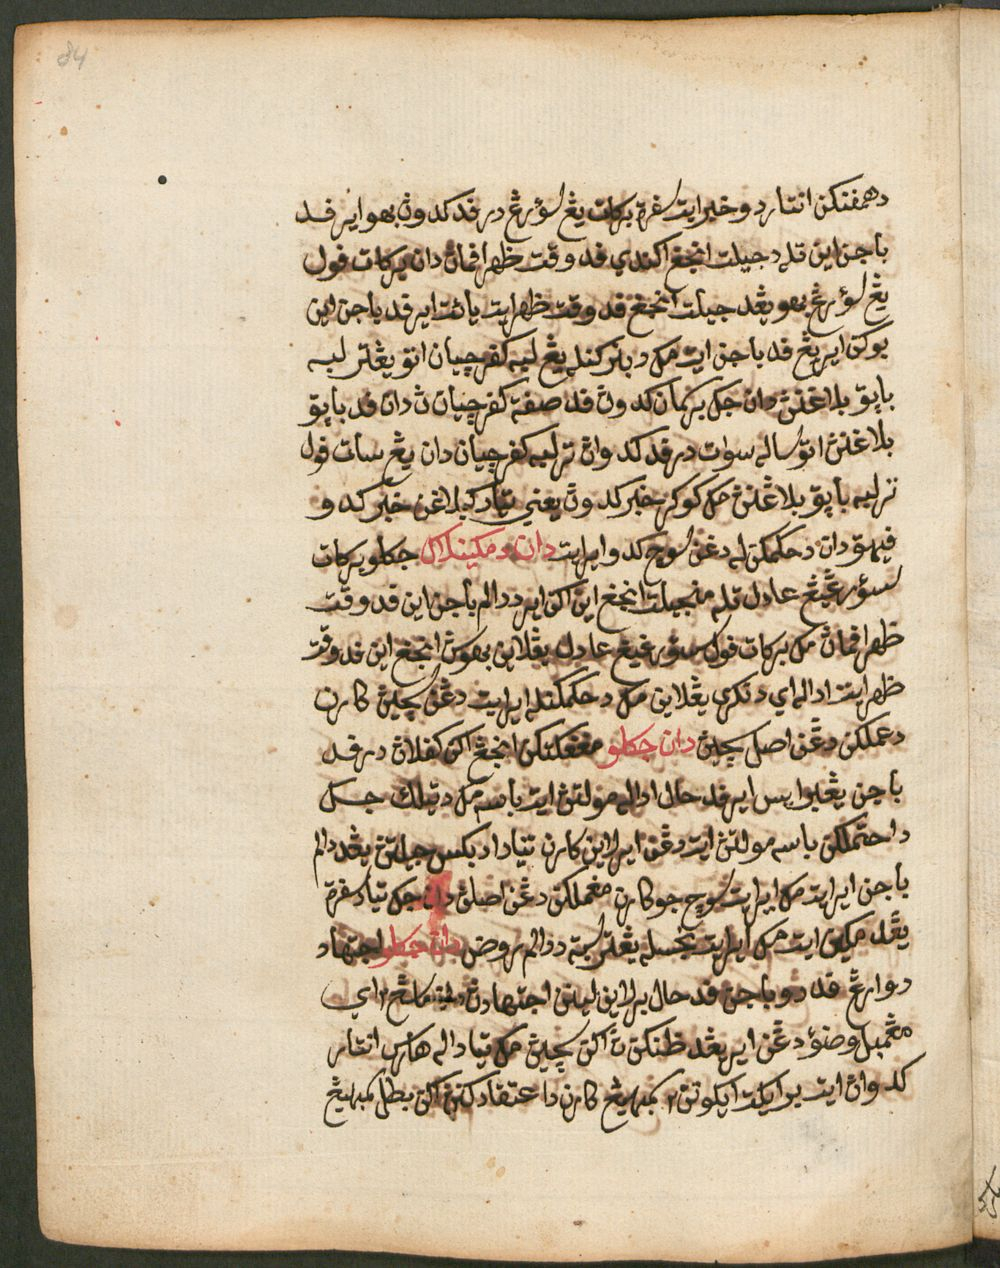 84
دهمفنكن انتار دوخبر ايت سفرة بركات يڠ سؤرڠ درفد كدون بهوا اير فد
باجن اين تله دجيلت انجڠ اكندي فد وقت ظهر افمان دان بركات فول
يڠ سؤرڠ بهو يڠد جيلت انجڠ فد وقت ظهر ايت يائت اير فد باجن اين
بوكن اير يڠ فد باجن ايت مك دبنركنله يڠ لبه كفرچيان اتو يڠتر لبه
باپق بلاڠنن دان جك برسمان كدون فد صفة كفرچيان ث دان فد باپق
بلاڠنن اتو ساله سوات درفد كدوان ترلبه كفرچيان دان يڠ سات فول
ترلبه باپق بلاڠنن مك ڬوڬر خبر كدون يعني تياد كبلاڠن خبر كدو
فيهق دان دحكمكن له دڠن سوچ كدوا اير ايت دان دمكينلاڬ جكلو بركات
سؤرڠ يڠ عادل تله منجيلت انجڠ اين اكن اير ددالم باجن اين فد وقت
ظهر افمان مك بركات فول سؤرڠ يڠ عادل يڠلاين بهوس انجڠ اين فد وقت
ظهر ايت اداله اي دنكري يڠلاين مك دحكمكنله اير ايت دڠن سچين كارن
دعملكن دڠن اصل سچين دان جكلو مڠڠكتكن انجڠ اكن كفلان درفد
باجن يڠبوايس اير فد حال اداله مولتن ايت باسه مك دتيلك جك
داحتملكن باسه مولتن ايت دڠن اير لاين كارن تياد اد بكس جيلتن يڠد دالم
باجن اير ايت مك اير ايت سوچ جو كارن مڠملكن دڠن اصلن دان جك تياد سفرة
يڠد مكين ايت مك اير ايت نجسله يڠترسبة ددالم روض دان جكلو اجتهاد
دوا ارڠ فد دو باجن فد حال برلاين لاينن اجتهادن دان ماسڠ٢ اي
مڠمبل وضؤ دڠن اير يڠد ظنكنن اكن سچين مك تياداله هارس انتار
كدوان ايت برايكت ايكوتن٢ كمبهيڠ كارن داعتقادكنن اكن بطل سمبهيڠ